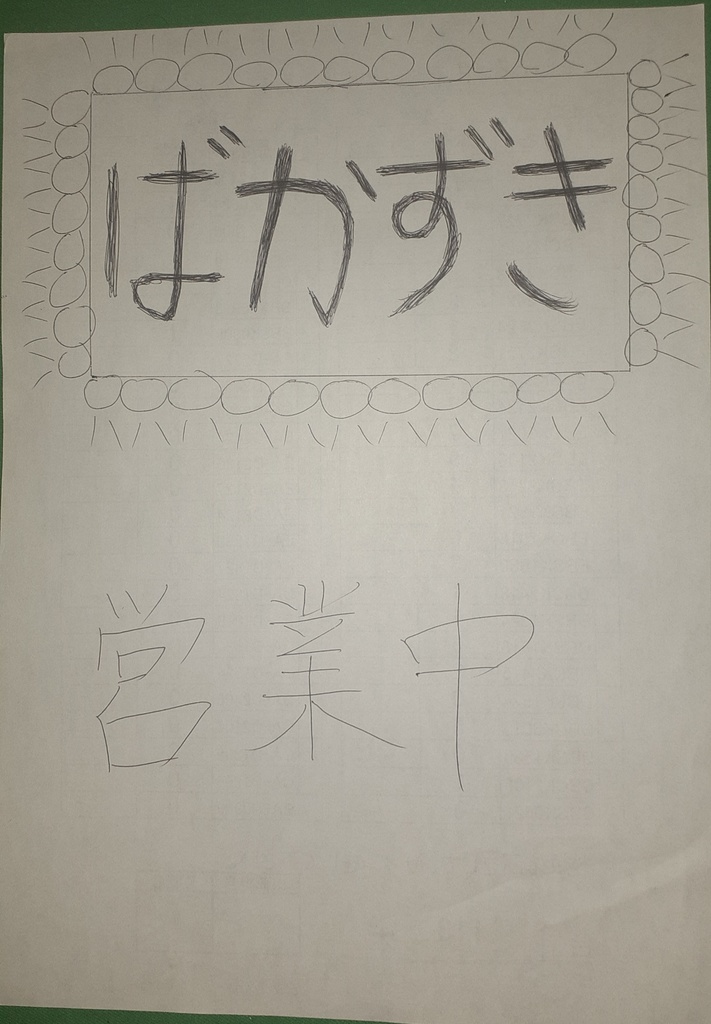 ばかずき
営業中